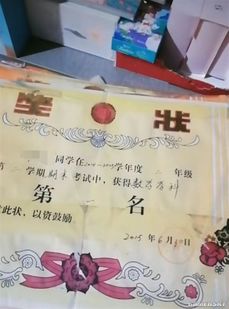 奖状
同学在 学年度 年级
第 学期期末考试中，获得数学学科
第 名
此状，以资鼓励
2015年6月30日